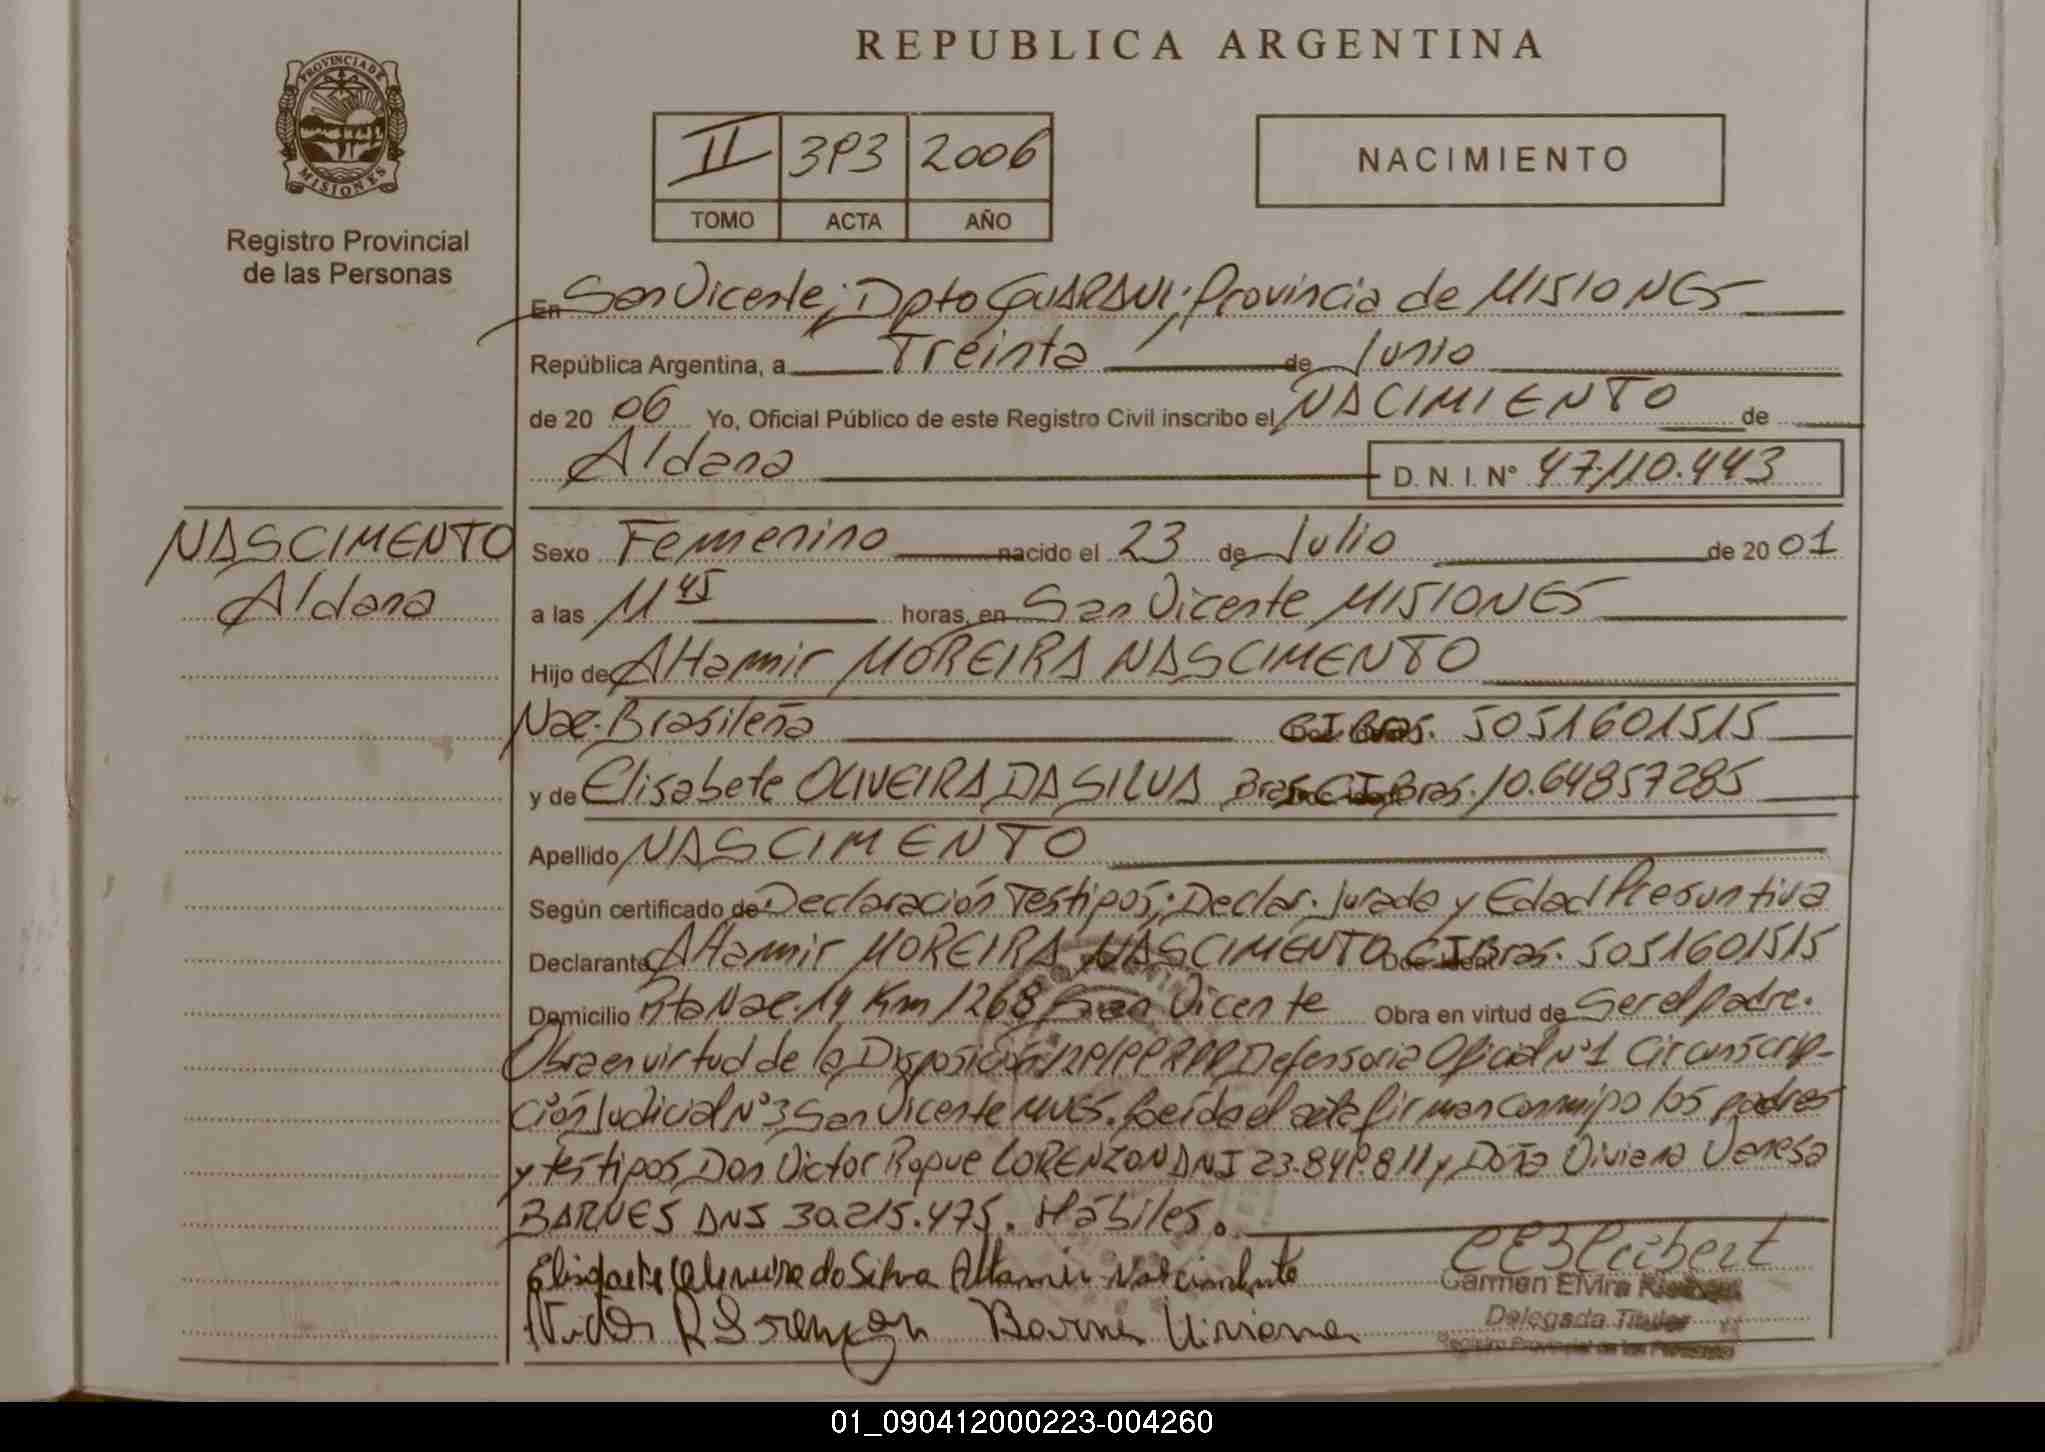 REPUBLICA ARGENTINA
PROVINCIA DE
MISIONES
Registro Provincial
de las Personas
II 393 2006
TOMO ACTA AÑO
NACIMIENTO
En San Vicente; Dpto GUARANI; Provincia de MISIONES
República Argentina, a Treinta de Junio
de 2006 Yo, Oficial Público de este Registro Civil inscribo el NACIMIENTO de
Aldana D. N. I. N° 47.110.443
NASCIMENTO
Aldana
Sexo Femenino nacido el 23 de Julio de 2001
a las 11 45 horas, en San Vicente MISIONES
Hijo de Altamir MOREIRA NASCIMENTO
Nac. Brasileña C.I. Bras. 5051601515
y de Elisabete OLIVEIRA DA SILVA Bras. C.I. Bras. 10.64857285
Apellido NASCIMENTO
Según certificado de Declaración Testigos; Declar. Jurada y Edad Presuntiva
Declarante Altamir MOREIRA NASCIMENTO C.I. Bras. 5051601515
Domicilio Rta Nac. 14 Km 1268 San Vicente Obra en virtud de Ser el padre.
Obra en virtud de la Disposición Defensoria Oficial N°1 Circunscrip-
ción Judicial N°3 San Vicente MNES. Leída el acta firman conmigo los padres
y testigos Don Victor Roque LORENZON DNI 23.849.811 y Doña Viviana Vanesa
BARNES DNI 30.215.475. Hábiles.
Elisabete Oliveira da Silva Altamir Nascimento
Victor R Lorenzon Barnes Viviana
Carmen Elvira
Delegada Titular
Registro Provincial de las Personas
01_090412000223-004260